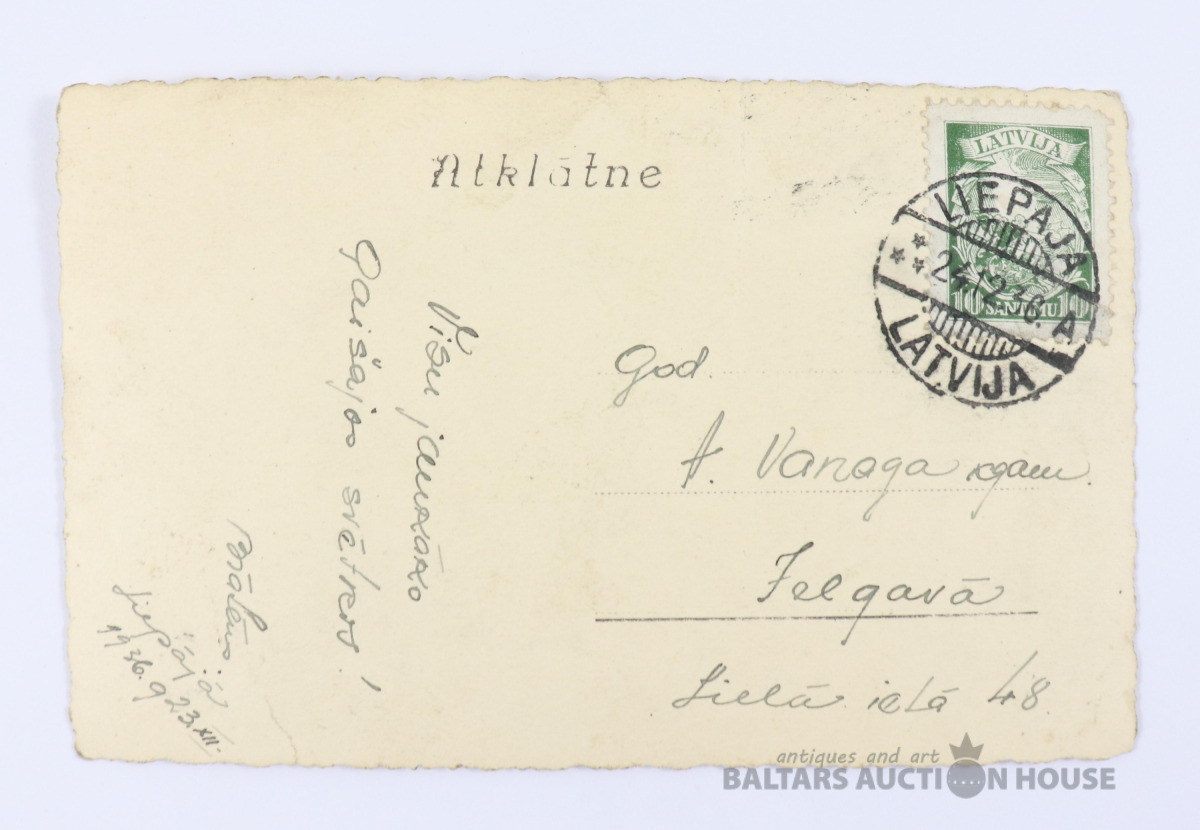 Atklātne
LATVIJA
10 SANTIMU 10
LIEPAJA
24.12.36. A
LATVIJA
Visu jaukāko
Gaišajos svētkos!
Brālēns
Liepājā
1936. g 23.XII.
God.
A. Vanaga kgam.
Jelgavā
Lielā ielā 48.
antiques and art
BALTARS AUCTION HOUSE